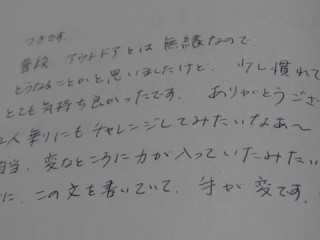 つきです
普段 アウトドアとは無縁なので、
どうなることかと思いましたけど、少し慣れて
とても気持ち良かったです。ありがとうござ
2人乗りにもチャレンジしてみたいなあ〜
相当、変なところに力が入っていたみたい
に、この文を書いていて、手が変です。